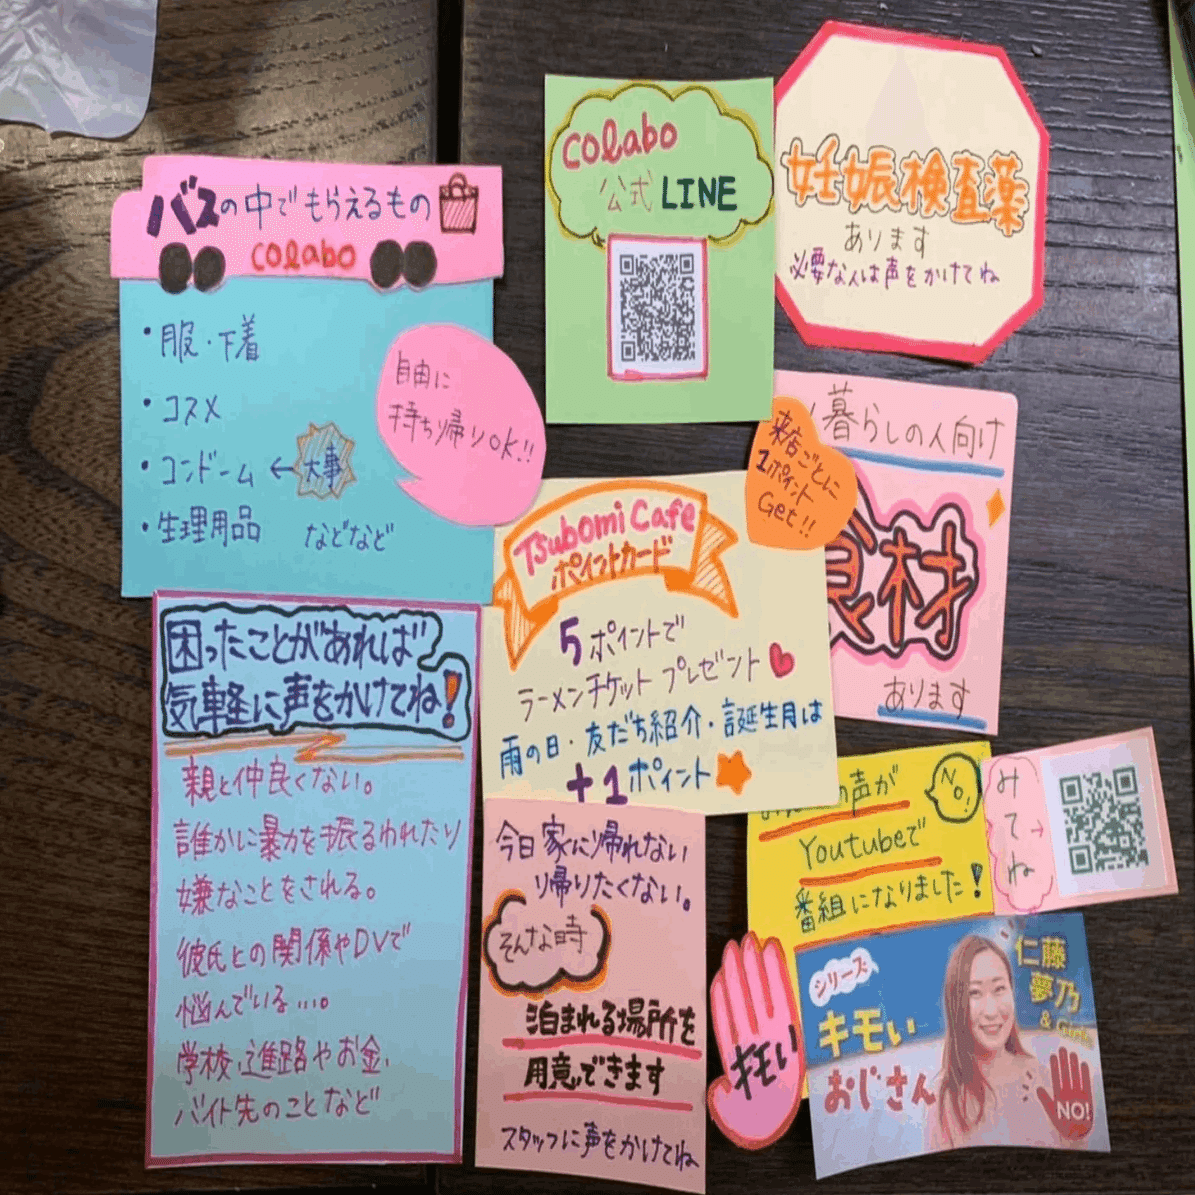 バスの中でもらえるもの
colabo
・服・下着
・コスメ
・コンドーム ← 大事
・生理用品 などなど
自由に
持ち帰りOK!!
colabo
公式 LINE
妊娠検査薬
あります
必要な人は声をかけてね
暮らしの人向け
食材
あります
来店ごとに
1ポイント
Get!!
Tsubomi Cafe
ポイントカード
5ポイントで
ラーメンチケット プレゼント
雨の日・友だち紹介・誕生月は
+1ポイント
困ったことがあれば
気軽に声をかけてね!
親と仲良くない。
誰かに暴力を振るわれたり
嫌なことをされる。
彼氏との関係やDVで
悩んでいる...。
学校、進路やお金、
バイト先のことなど
今日家に帰れない
帰りたくない。
そんな時
泊まれる場所を
用意できます
スタッフに声をかけてね
の声が
Youtubeで
番組になりました!
NO!
みてね→
キモい
シリーズ
キモい
おじさん
仁藤
夢乃
& Girls
NO!